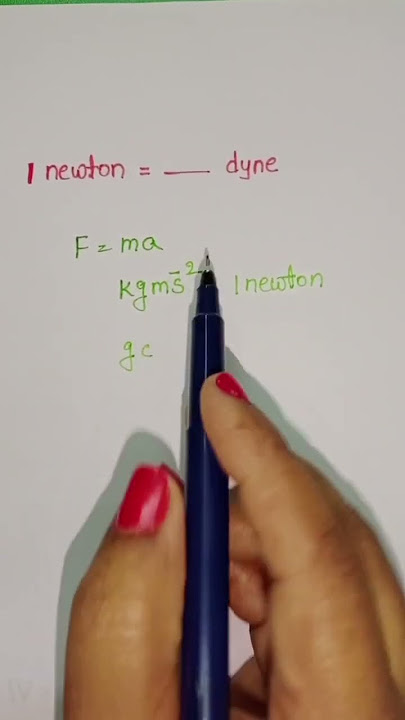 1 newton = ___ dyne
F = ma
kgms⁻² 1 newton
gc